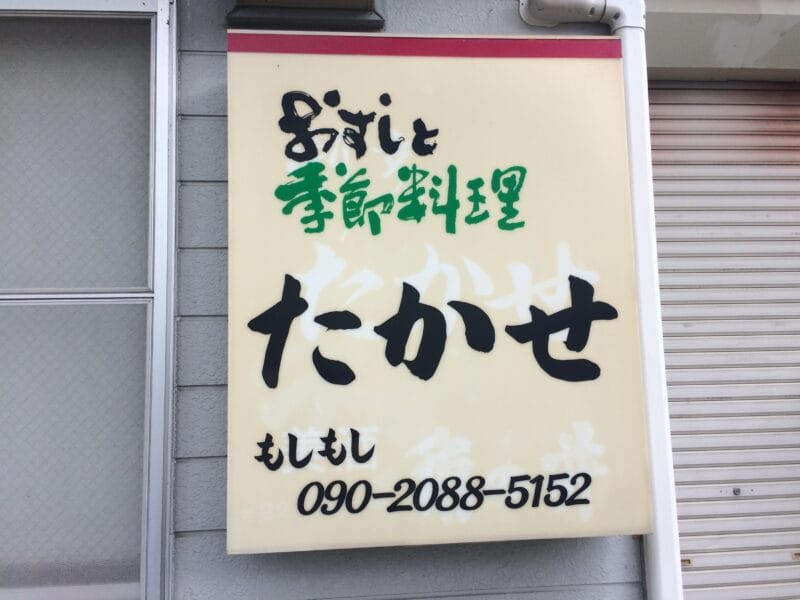 おすしと
季節料理
たかせ
もしもし
090-2088-5152